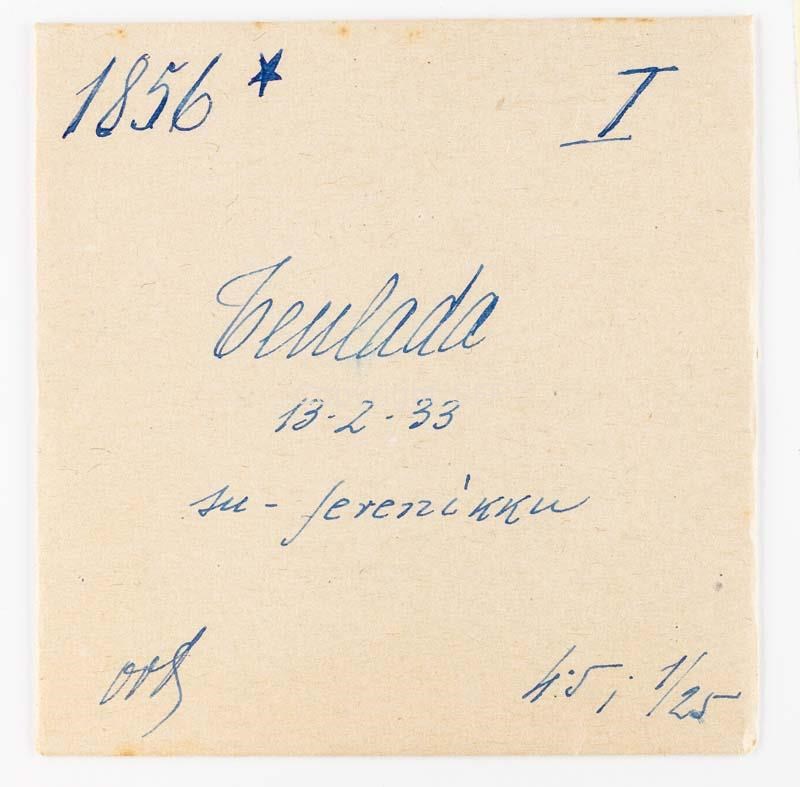 1856 * I
Teulada
13-2-33
su-ferenikku
4:5; 1/25